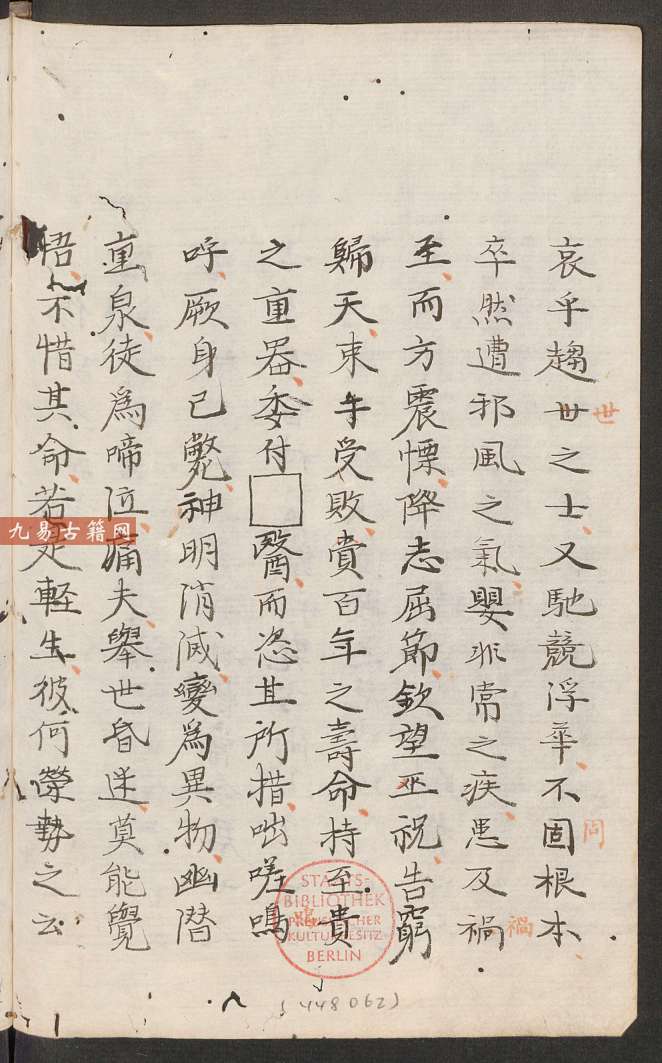 哀乎趨世之士、又馳競浮華、不固根本、
卒然遭邪風之氣、嬰非常之疾、患及禍
至、而方震慄、降志屈節、欽望巫祝、告窮
歸天、束手受敗、賫百年之壽命、持至貴
之重器、委付□醫、而恣其所措、咄嗟嗚
呼、厥身已斃、神明消滅、變爲異物、幽潛
重泉、徒爲啼泣、痛夫、舉世昏迷、莫能覺
悟、不惜其命、若是輕生、彼何榮勢之云
世
禍
STAATS-
BIBLIOTHEK
PREUSSISCHER
KULTURBESITZ
BERLIN
(448062)
九易古籍网